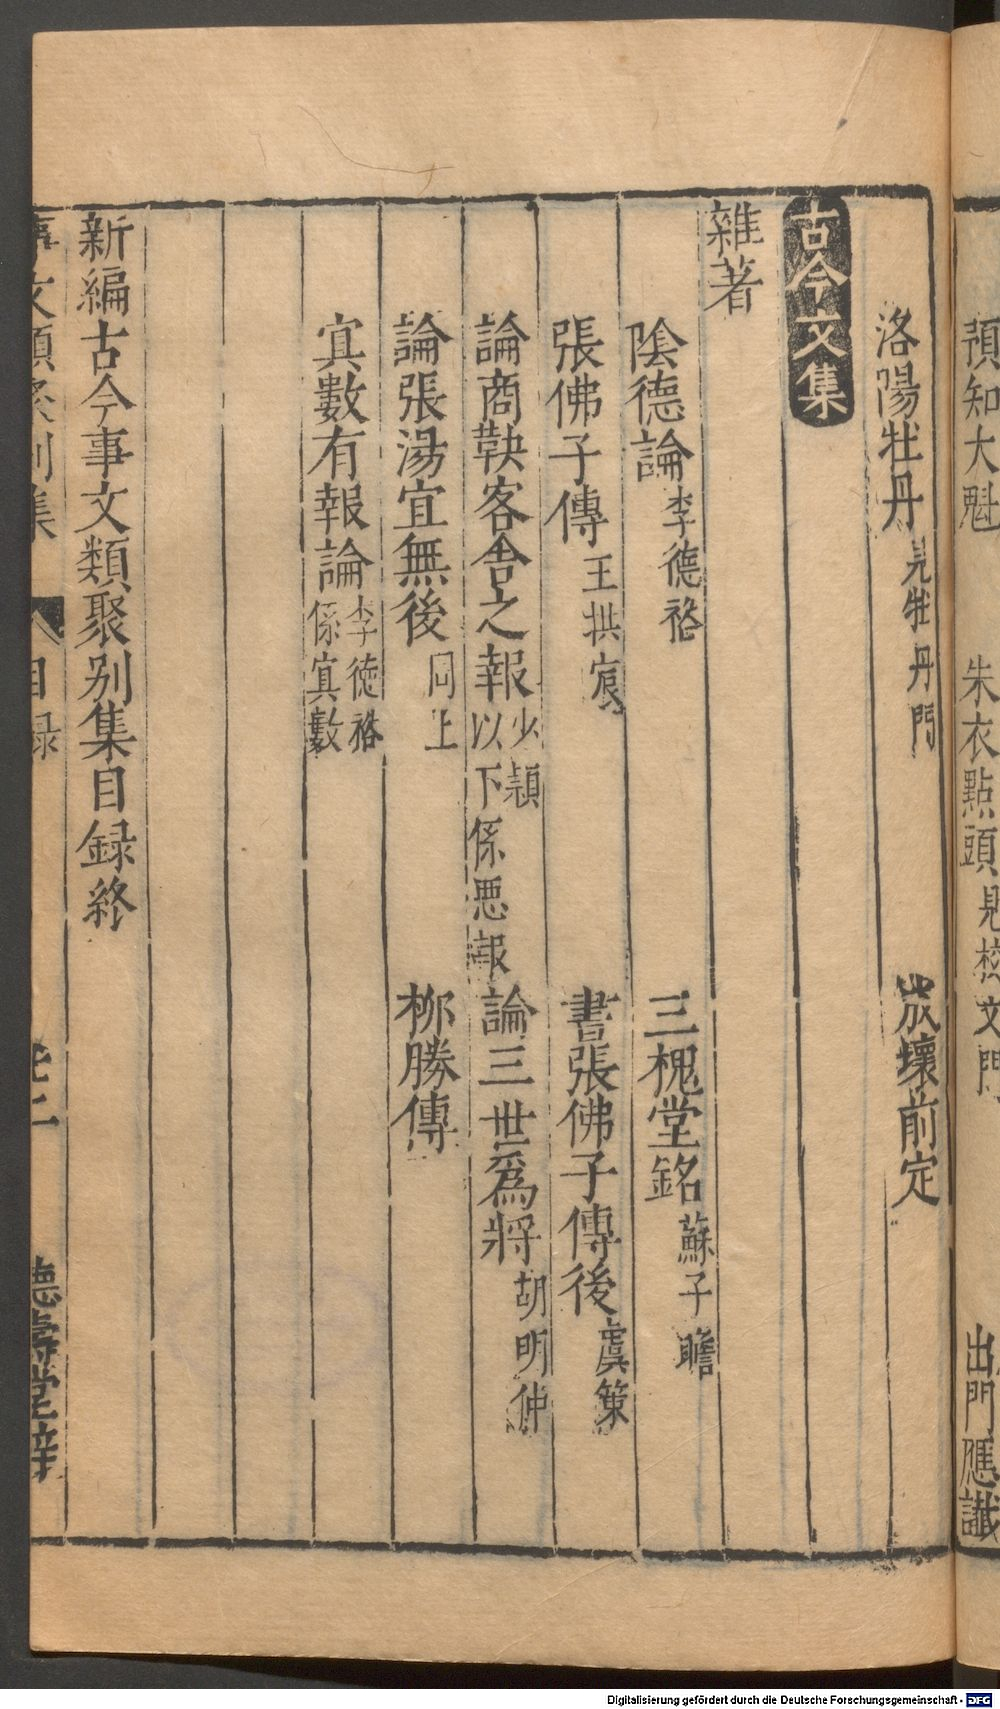 預知大魁　朱衣點頭見校文門　出門應讖
洛陽牡丹見牡丹門　成壞前定
古今文集
雜著
陰德論李德裕　三槐堂銘蘇子瞻
張佛子傳王拱宸　書張佛子傳後虞策
論商鞅客舍之報少穎以下係悪報　論三世爲將胡明仲
論張湯宜無後同上　柳勝傳
寘數有報論李徳裕係寘數
新編古今事文類聚别集目録終
事文類聚别集　目録　廿二　德壽堂梓
Digitalisierung gefördert durch die Deutsche Forschungsgemeinschaft - DFG